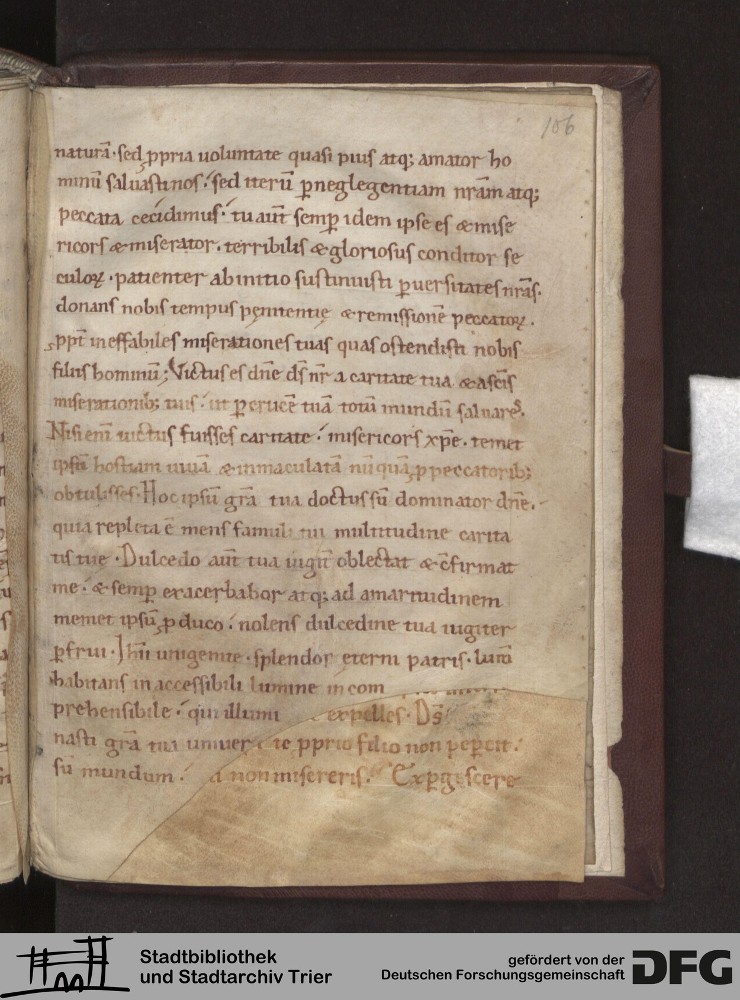 106
naturā · sed ꝓpria uoluntate quasi pius atq; amator ho
minū saluasti nos · sed iterū ꝑ neglegentiam nr̄am atq;
peccata cecidimus · tu aut̄ semꝑ idem ipse es & mise
ricors & miserator · terribilis & gloriosus conditor se
culoꝝ · patienter ab initio sustinuisti ꝑuersitates nr̄as ·
donans nobis tempus pęnitentię & remissionē peccatoꝝ ·
ꝓpt̄ ineffabiles miserationes tuas quas ostendisti nobis
filiis hominū ; Victus es dn̄e ds̄ nr̄ a caritate tua & a sc̄is
miserationib; tuis · ut ꝑ crucē tuā totū mundū saluares ·
Nisi enī uictus fuisses caritate · misericors xp̄e · temet
ipsū hostiam uiuā & inmaculatā nūquā ꝓ peccatorib;
obtulisses · Hoc ipsū gr̄a tua doctus sū dominator dn̄e ·
quia repleta ē mens famuli tui multitudine carita
tis tuę · Dulcedo aut̄ tua iugit̄ oblectat & c̄firmat
me · & semꝑ exacerbabor atq; ad amaritudinem
memet ipsū ꝓduco · nolens dulcedine tua iugiter
ꝑfrui · Ihū unigenite · splendor eterni patris · lum̄
habitans in accessibili lumine incom
prehensibile · qui illumi expelles · Ds̄
nasti gr̄a tua uniuer te pprio filio non peꝑcit ·
sū mundum · non misereris · Exꝑgescere
Stadtbibliothek
und Stadtarchiv Trier
gefördert von der
Deutschen Forschungsgemeinschaft
DFG